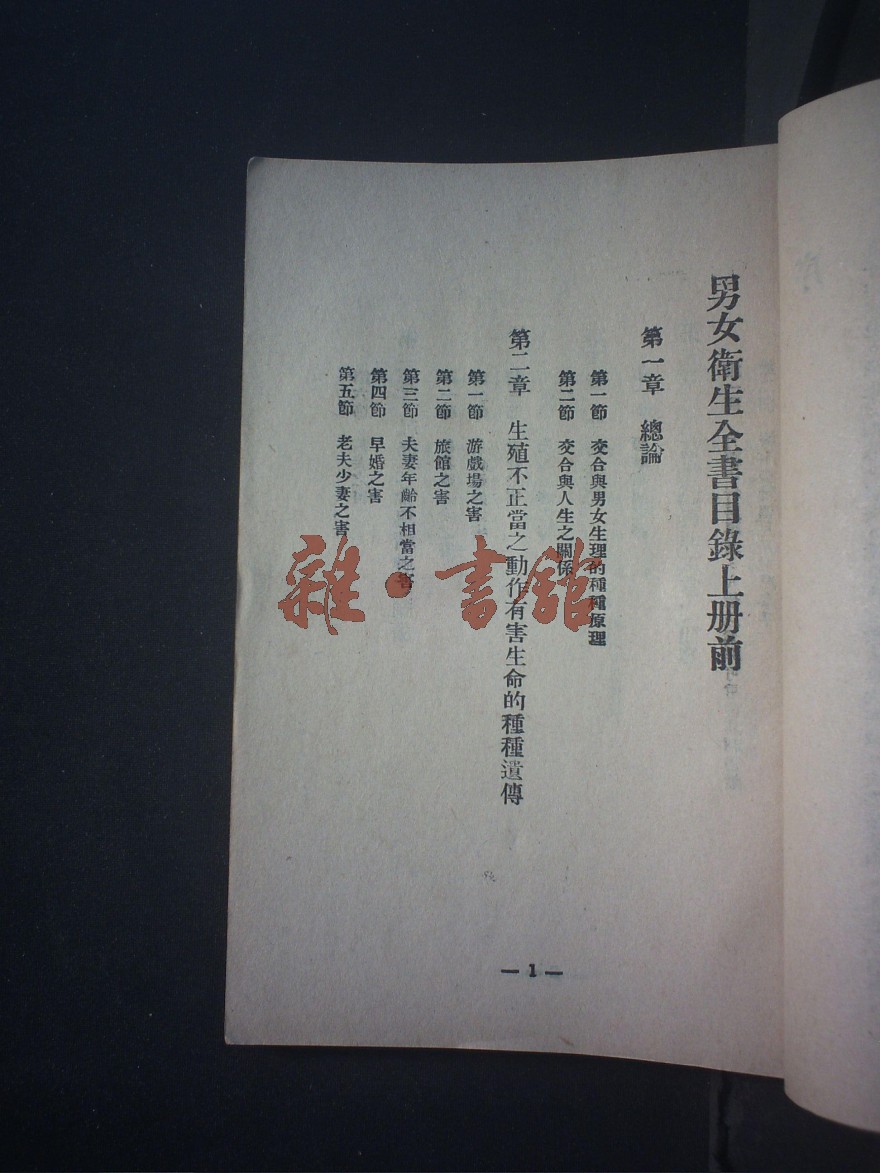 男女衛生全書目錄上册前
第一章 總論
第一節 交合與男女生理的種種原理
第二節 交合與人生之關係
第二章 生殖不正當之動作有害生命的種種遺傳
第一節 游戲場之害
第二節 旅館之害
第三節 夫妻年齡不相當之害
第四節 早婚之害
第五節 老夫少妻之害
— 1 —
雜·書館